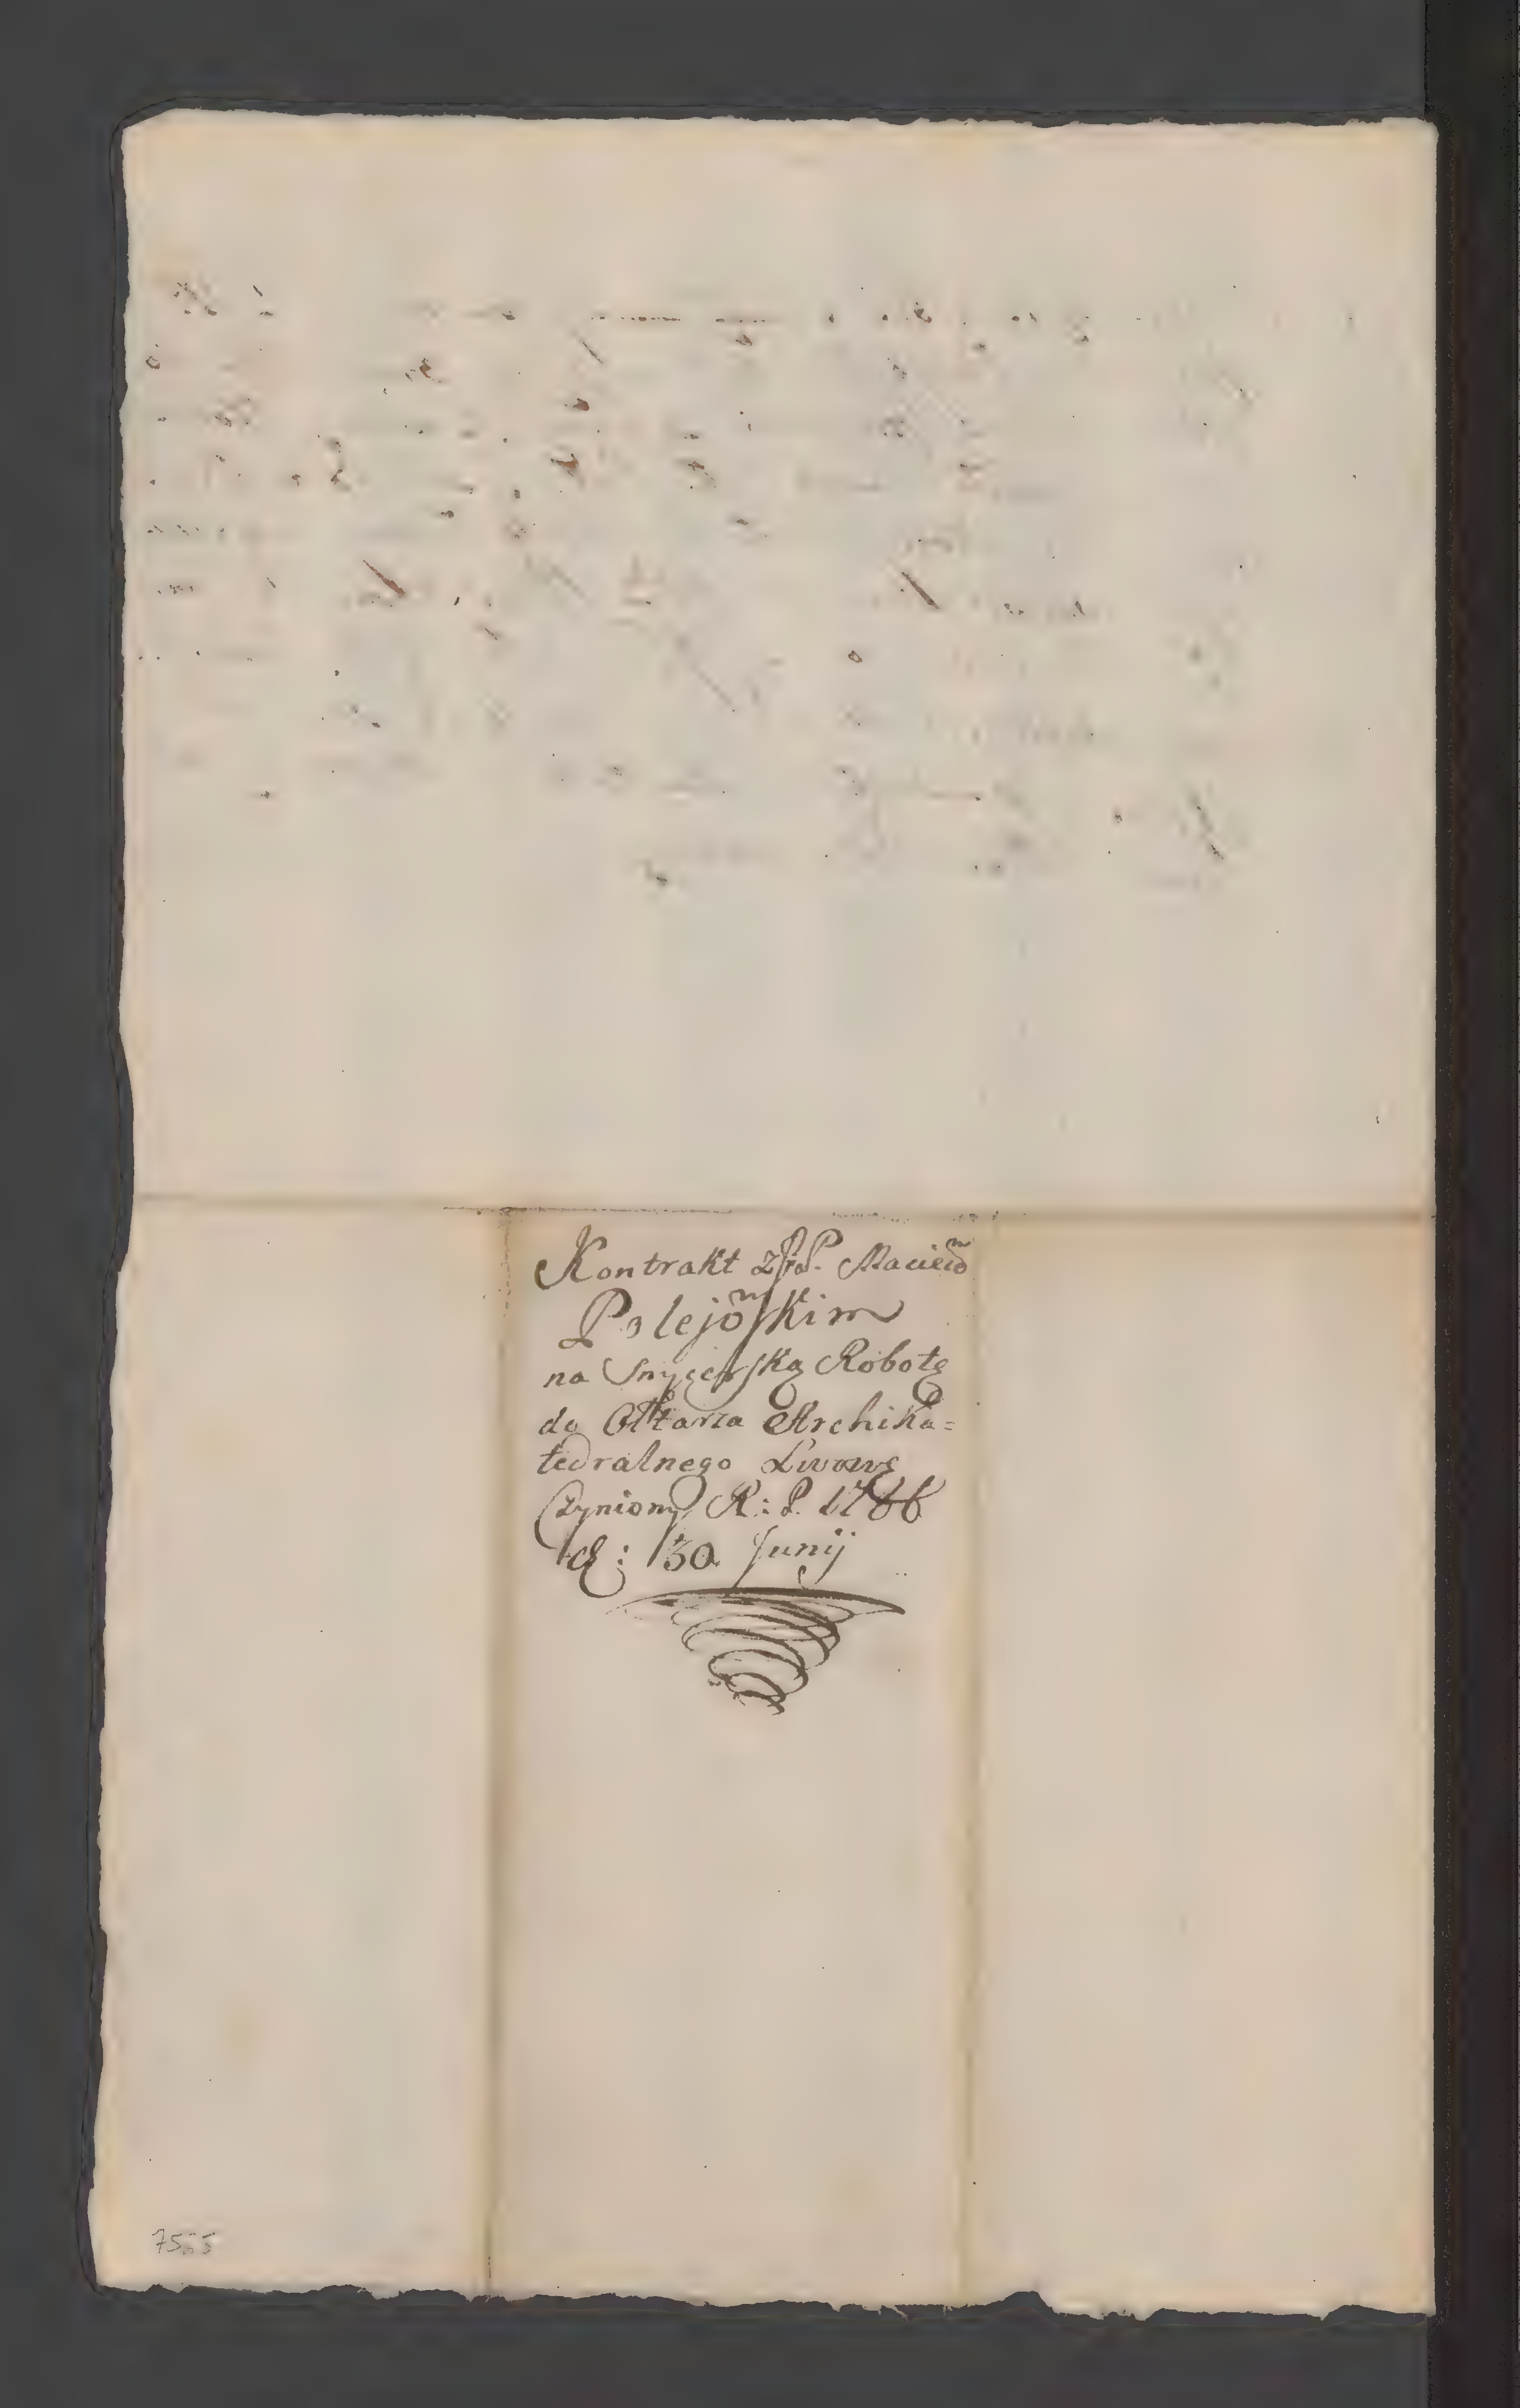 Kontrakt z JP. Macieiē
Polejōskim
na Snycerską Robotę
do Ołtarza Archika=
tedralnego Lwows
Czyniony R: P. 1766
d: 30 Junij